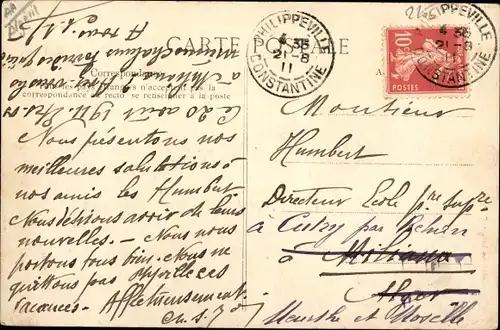 CARTE POSTALE
PHILIPPEVILLE
4 35
21 - 8
11
CONSTANTINE
PHILIPPEVILLE
4 35
21 - 8
11
CONSTANTINE
10
POSTES
Correspondance
Tous les pays étrangers n'acceptent pas la
correspondance au recto se renseigner à la poste
Ce 20 août 1911
Nous présentons nos
meilleures salutations à
nos amis les Humbert
Nous désirons avoir de leurs
nouvelles. - Nous nous
portons tous bien. Nous ne
quittons pas
vacances. Affectueusement.
Monsieur
Humbert
Directeur Ecole pre supre
à Cutry par Rehon
à Miliana
Alger
Meurthe et Moselle